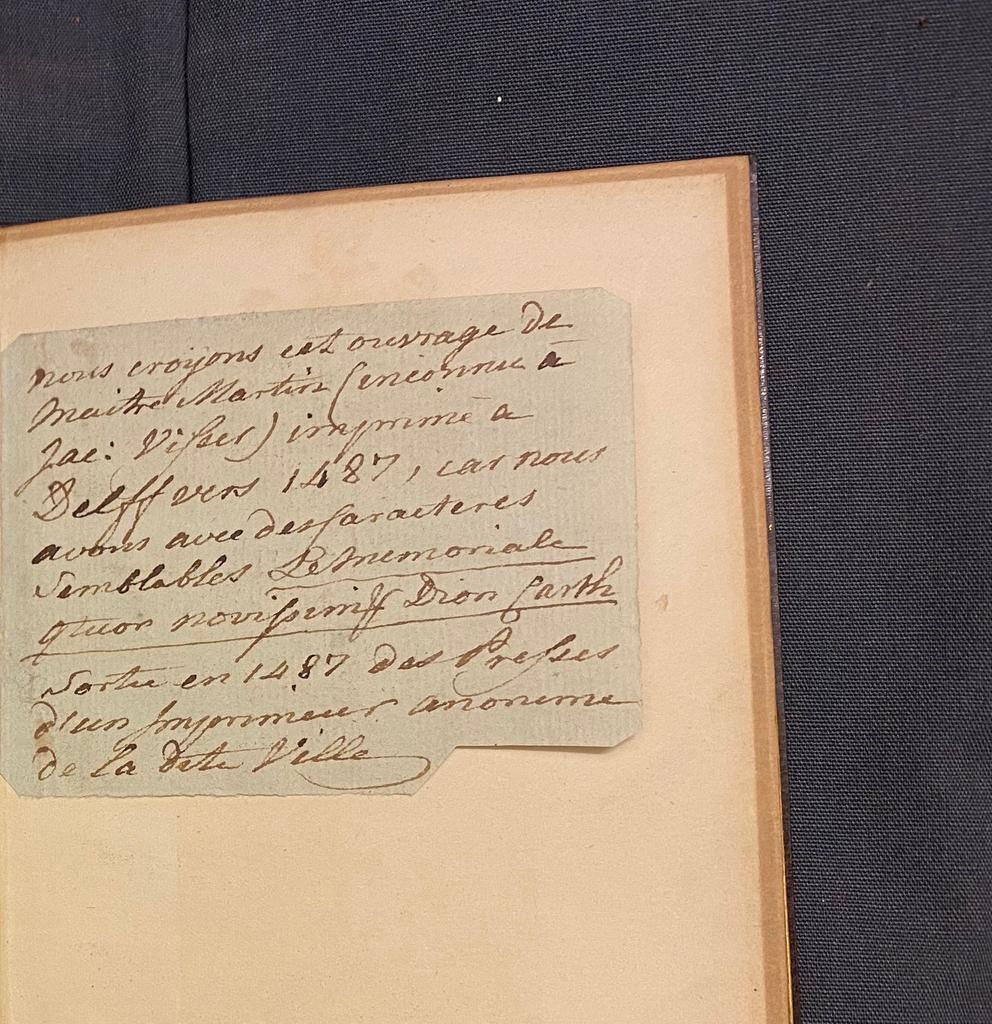 nous croyons cet ouvrage de
Maitre Martin (inconnu à
Jac: Visser) imprimé a
Delff vers 1487, car nous
avons avec des caracteres
Semblables Le Memoriale
quor novissimis Dion Carth
Sortie en 1487 des Presses
d'un Imprimeur anonime
de la dite Ville